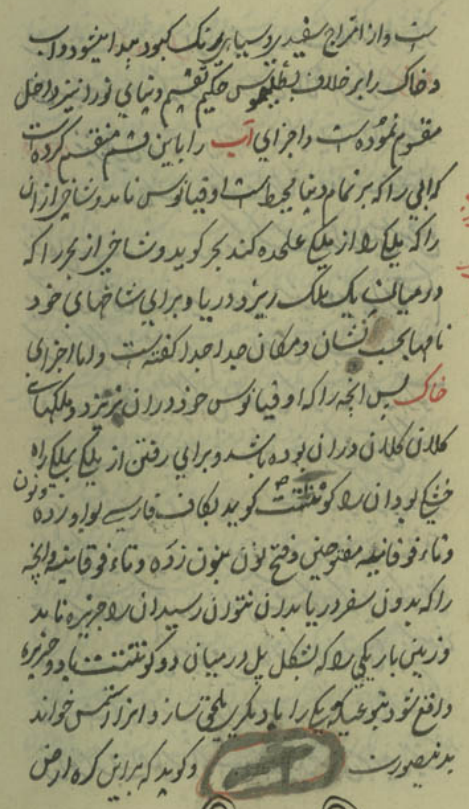 ست و از امتزاج سفیدی و سیاهی برنگ کبود پیدا میشود و آب
و خاک را بر خلاف بطلمیوس حکیم تقسیم دنیای نو را نیز داخل
مقسوم نموده ست و اجزای آب را باین قسم منقسم کرده است
که آبی را که بر تمام دنیا محیط است اوقیانوس نامد و شاخی از ان
را که ملکی را از ملکی علحده کند بحر گوید و شاخی از بحر را که
در میان یک ملک ریزد دریا و برای شاخهای خود
نامها بحسب نشان و مکان جدا جدا گفته ست و اما اجزای
خاک پس آنچه را که اوقیانوس خود در ان نریزد و ملکهای
کلان کلان در ان بوده باشد و برای رفتن از ملکی بملکی راه
خشکی بود ان را کونتننت گوید بکاف فارسی بواو زده و نون
و تاء فوقانیه مفتوحتین و فتح نون بنون زده و تاء فوقانیه و آنچه
را که بدون سفر دریا بدان نتوان رسید ان را جزیره نامد
و زمین باریکی را که بشکل پل در میان دو کونتننت یا دو جزیره
واقع شود بنوعیکه یکی را با دیگری ملحق سازد انرا استمس خواند
بدینصورت و گوید که براین کره ارض